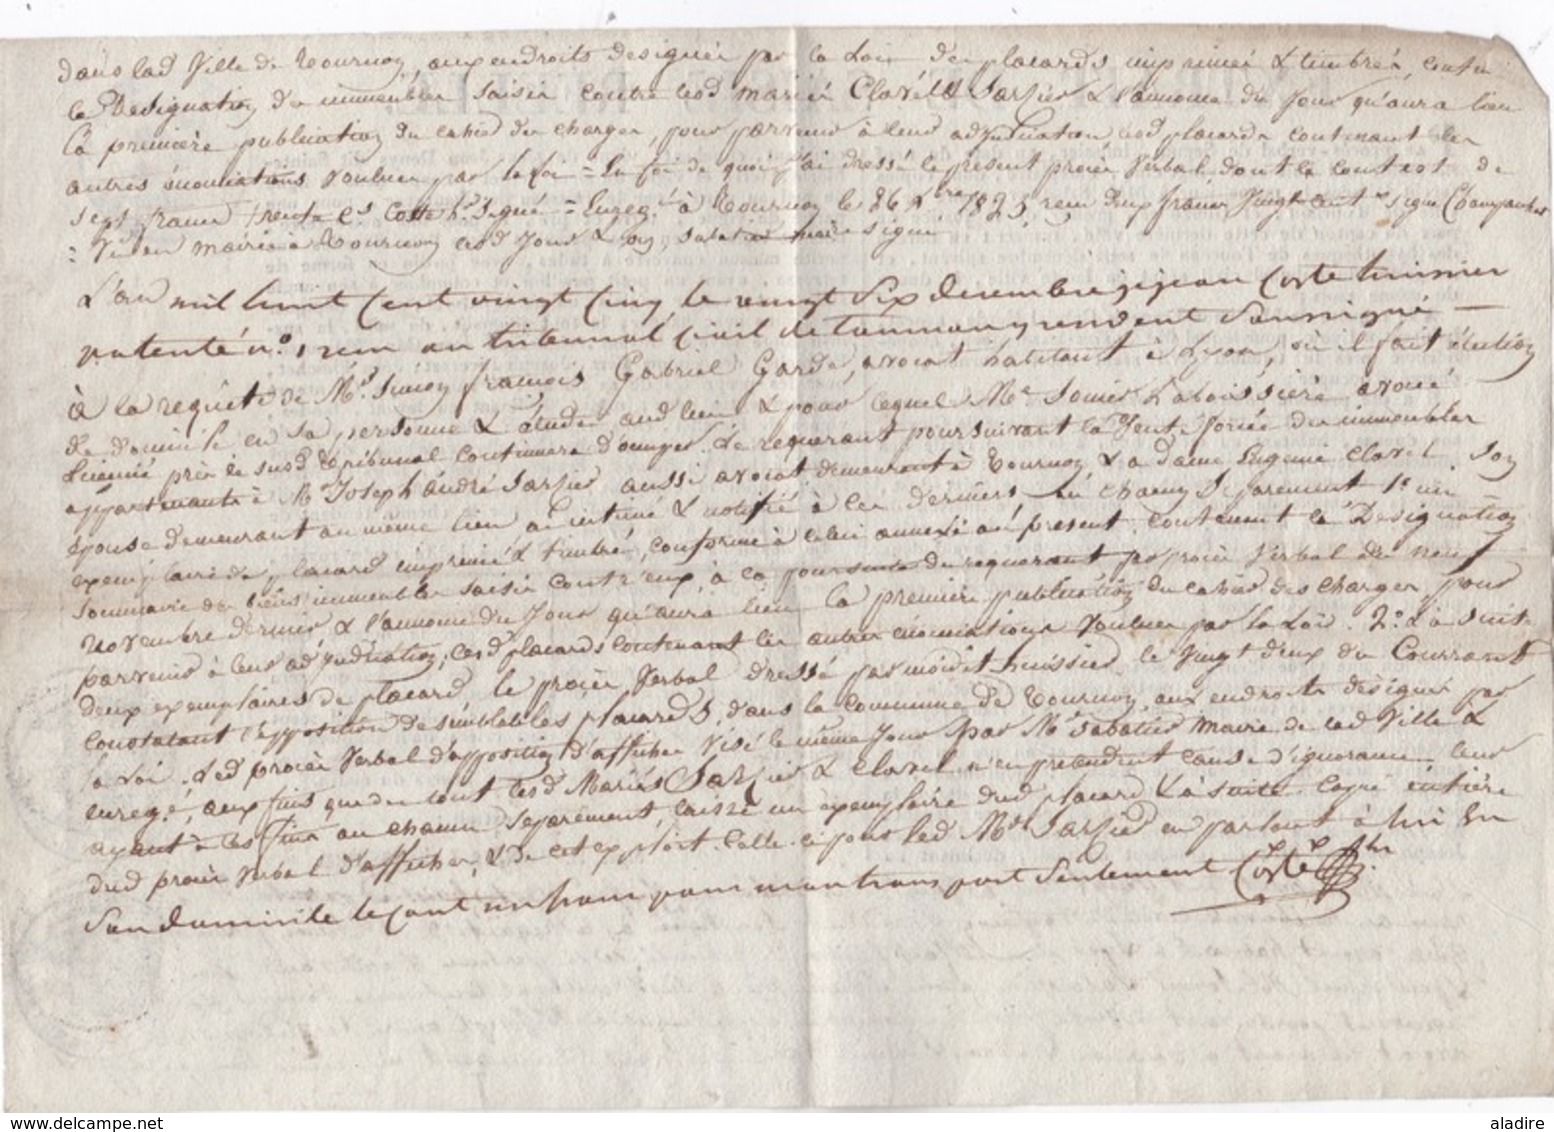 dans lad Ville de Tournon, aux endroits designés par la Loi de placards imprimés & timbrés, conten.t
la Designation des immeubles saisis contre lesd mariés Clavel & Sarzier & l'annonce du Jour qu'aura lieu
la première publication du cahier des charges, pour parvenir à leur adjudication lesd placards contenant les
autres énonciations voulues par la Loi = En foi de quoi j'ai dressé le présent procès Verbal dont le cout est de
sept francs trente c.s Coste h.r signé = Enreg.é à Tournon le 26 X.bre 1825, reçu deux francs Vingt cent.es signé
= Vu en mairie à Tournon lesd Jour & an, Sabatier maire signé
L'an mil huit Cent vingt Cinq le vingt Six decembre je jean Coste huissier
patenté n.o 1 reçu au tribunal Civil de Tournon y résident Soussigné —
à la requête de M.r Simon françois Gabriel Garde, avocat habitant à Lyon, où il fait élection
de domicile en sa personne & étude aud lieu & pour lequel M.e Sonier Laboissière avoué
licencié près le susd Tribunal continuera d'occuper. Le requerant poursuivant la Vente forcée des immeubles
appartenants à M.r Joseph André Sarzier aussi avocat demeurant à Tournon & a dame Eugenie Clavel Son
épouse demeurant au même lieu ai intimé & notifié à ces derniers & à chacun Separement 1.o un
exemplaire de placard imprimé & timbré, conforme à celui annexé au present, contenant la Designation
Sommaire des biens immeubles saisis contr'eux, à la poursuite du requerant par procès Verbal du neuf
Novembre dernier, & l'annonce du Jour qu'aura lieu la première publication du cahier des charges, pour
parvenir à leur adjudication, lesd placards contenant les autres énonciations voulues par la Loi. 2.o & à Suite
deux exemplaires de placard le procès Verbal dressé par moidit huissier le Vingt deux du Courrant
Constatant l'apposition de semblables placards, dans la commune de Tournon, aux endroits designés par
la Loi. Led procès Verbal d'apposition d'affiches Visé le même Jour par M.r Sabatier Maire de lad Ville &
enregé, aux fins que du tout lesd Mariés Sarzier & Clavel n'en prétendent cause d'ignorance, leur
ayant à ces fins au chacun Separément, laissé un exemplaire dud placard & à suite Copie entière
dud procès Verbal d'affiches, & de cet exploit. Celle-ci pour led M.r Sarzier en parlant à lui En
Son domicile le cout un franc pour mon transport Seulement Coste h.r